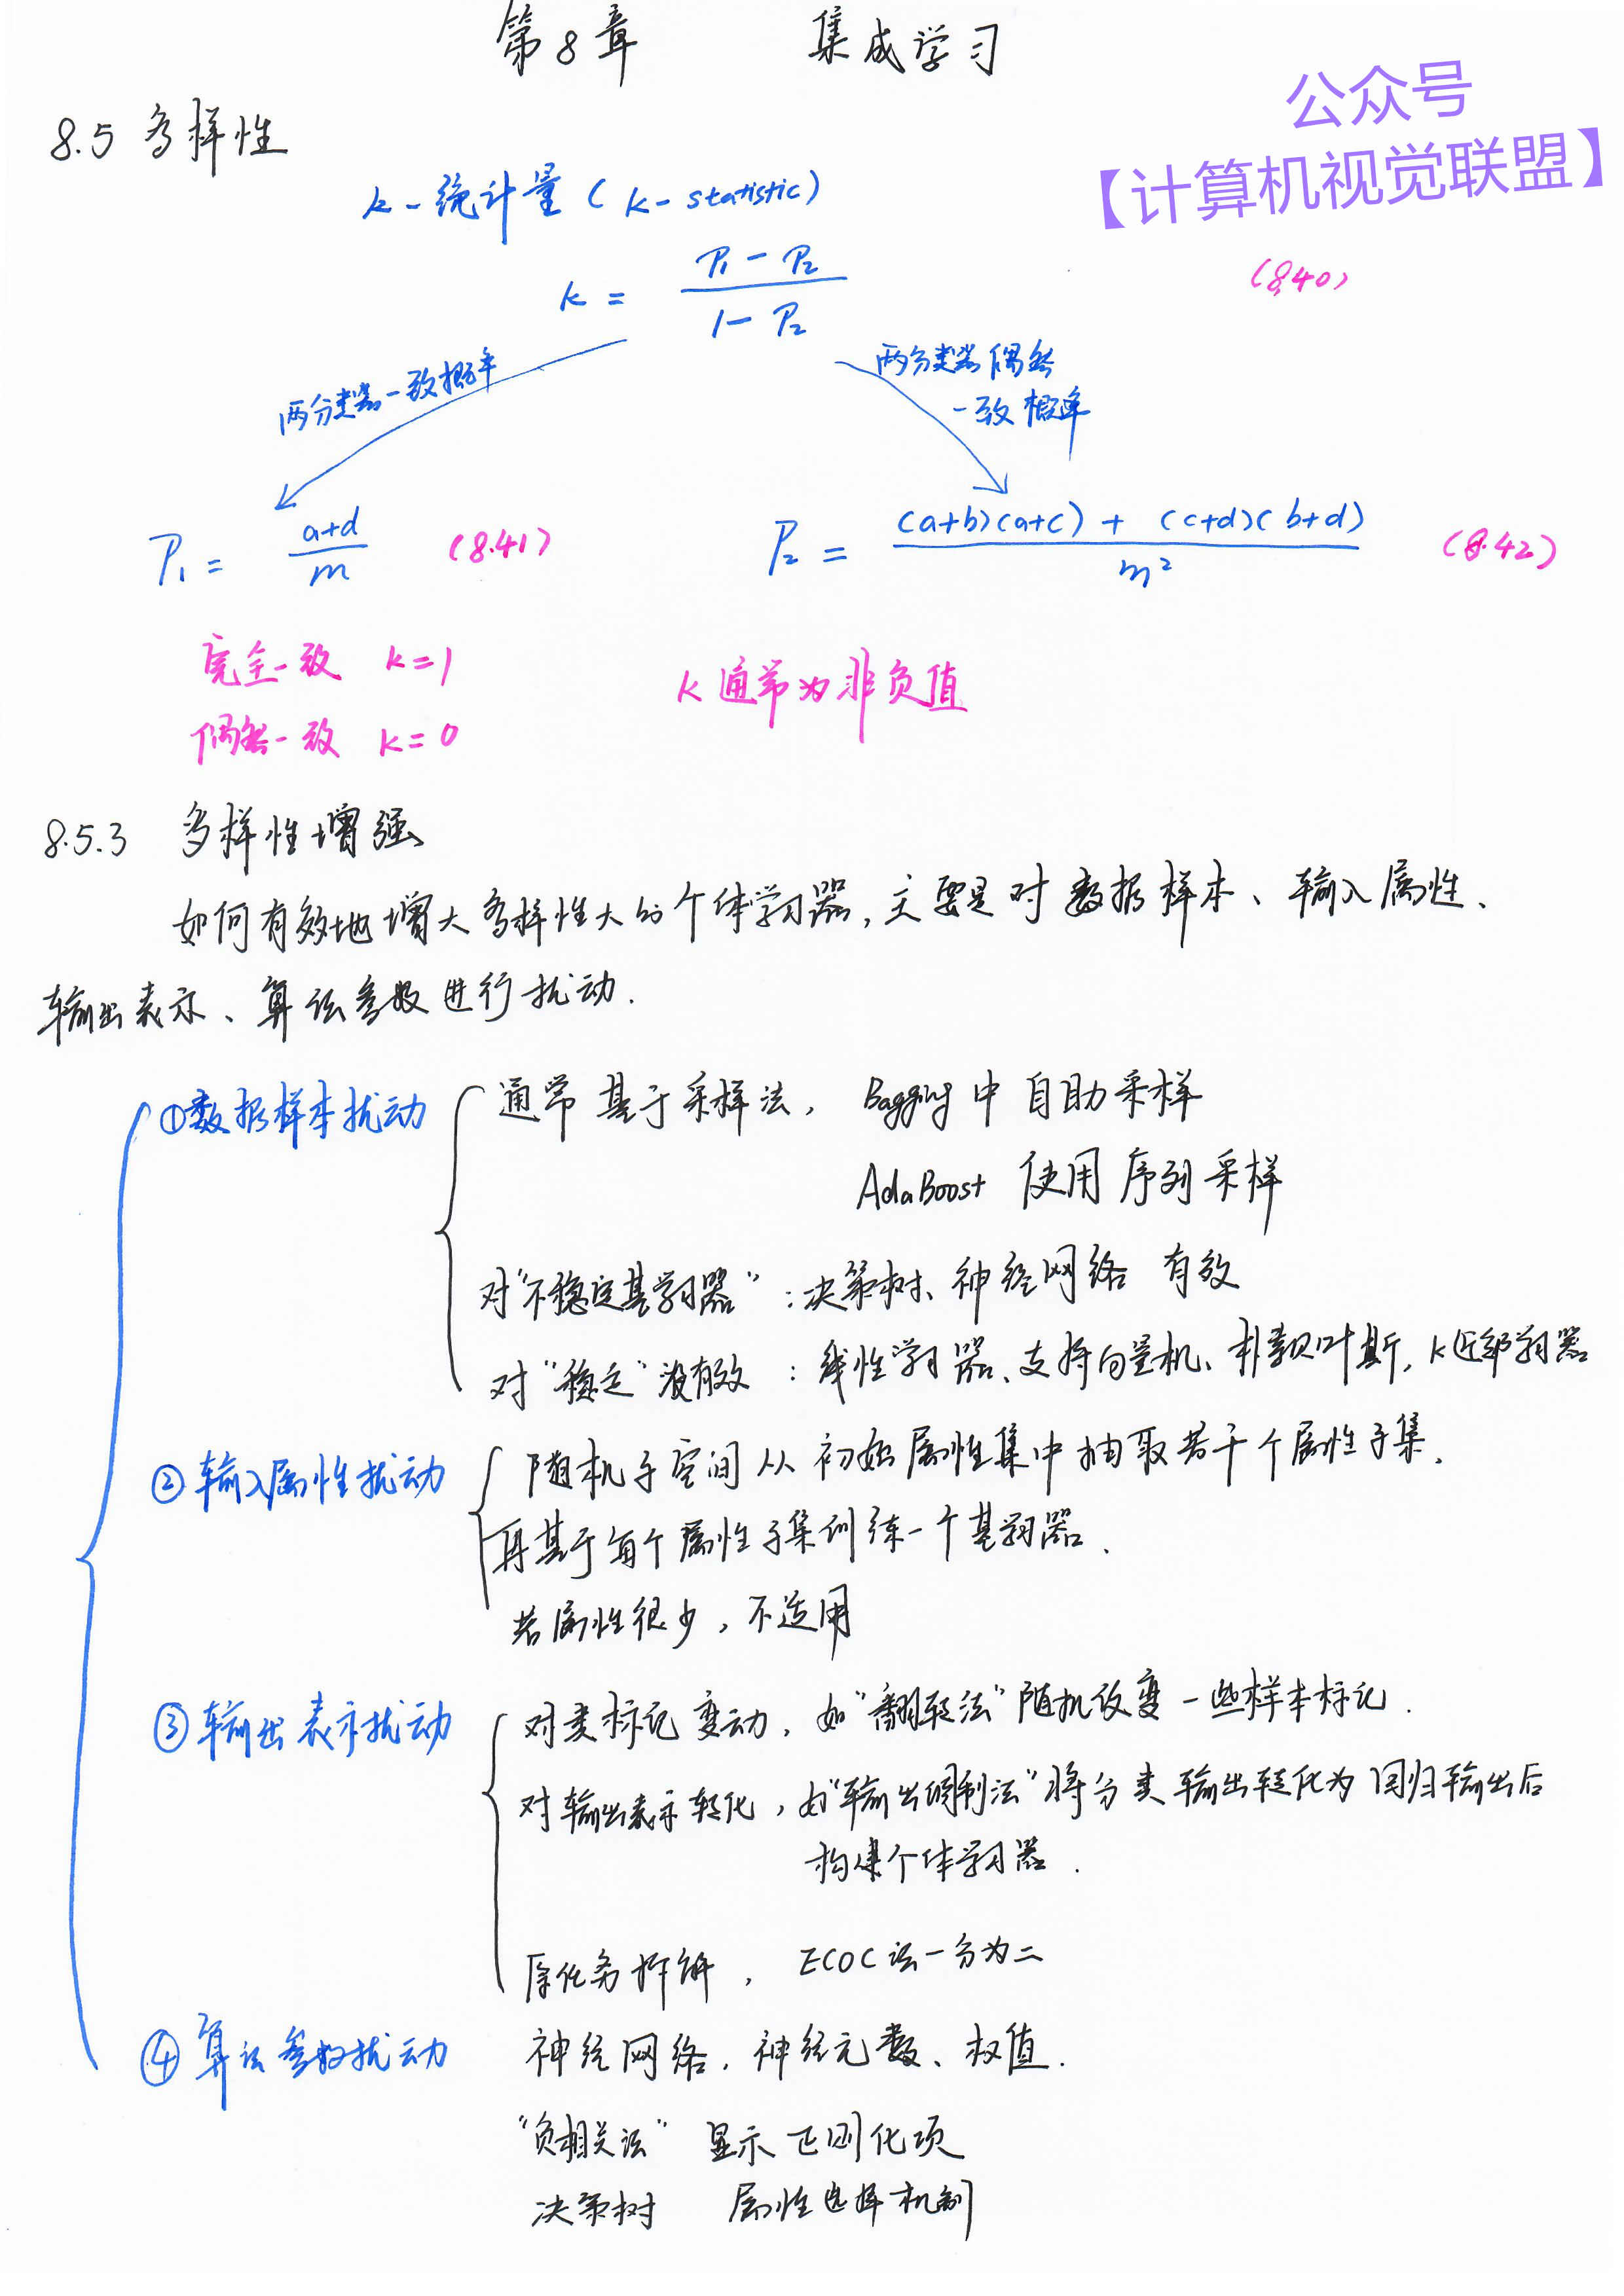 第8章 集成学习
公众号
【计算机视觉联盟】
8.5 多样性
k-统计量(k-statistic)
k = (P₁ - P₂) / (1 - P₂) (8.40)
两分类器一致概率
两分类器偶然
一致概率
P₁ = (a+d) / m (8.41) P₂ = ((a+b)(a+c) + (c+d)(b+d)) / m² (8.42)
完全一致 k=1
k通常为非负值
偶然一致 k=0
8.5.3 多样性增强
如何有效地增大多样性大的个体学习器,主要是对数据样本、输入属性、
输出表示、算法参数进行扰动.
①数据样本扰动 通常基于采样法, Bagging中自助采样
AdaBoost 使用序列采样
对“不稳定基学习器”:决策树、神经网络 有效
对“稳定”没有效:线性学习器、支持向量机、朴素贝叶斯,k近邻学习器
②输入属性扰动 随机子空间从初始属性集中抽取若干个属性子集,
再基于每个属性子集训练一个基学习器、
若属性很少,不适用
③输出表示扰动 对类标记变动,如“翻转法”随机改变一些样本标记.
对输出表示转化,如“输出调制法”将分类输出转化为回归输出后
构建个体学习器.
原任务拆解, ECOC法一分为二
④算法参数扰动 神经网络,神经元数、权值.
“负相关法” 显示正则化项
决策树 属性选择机制